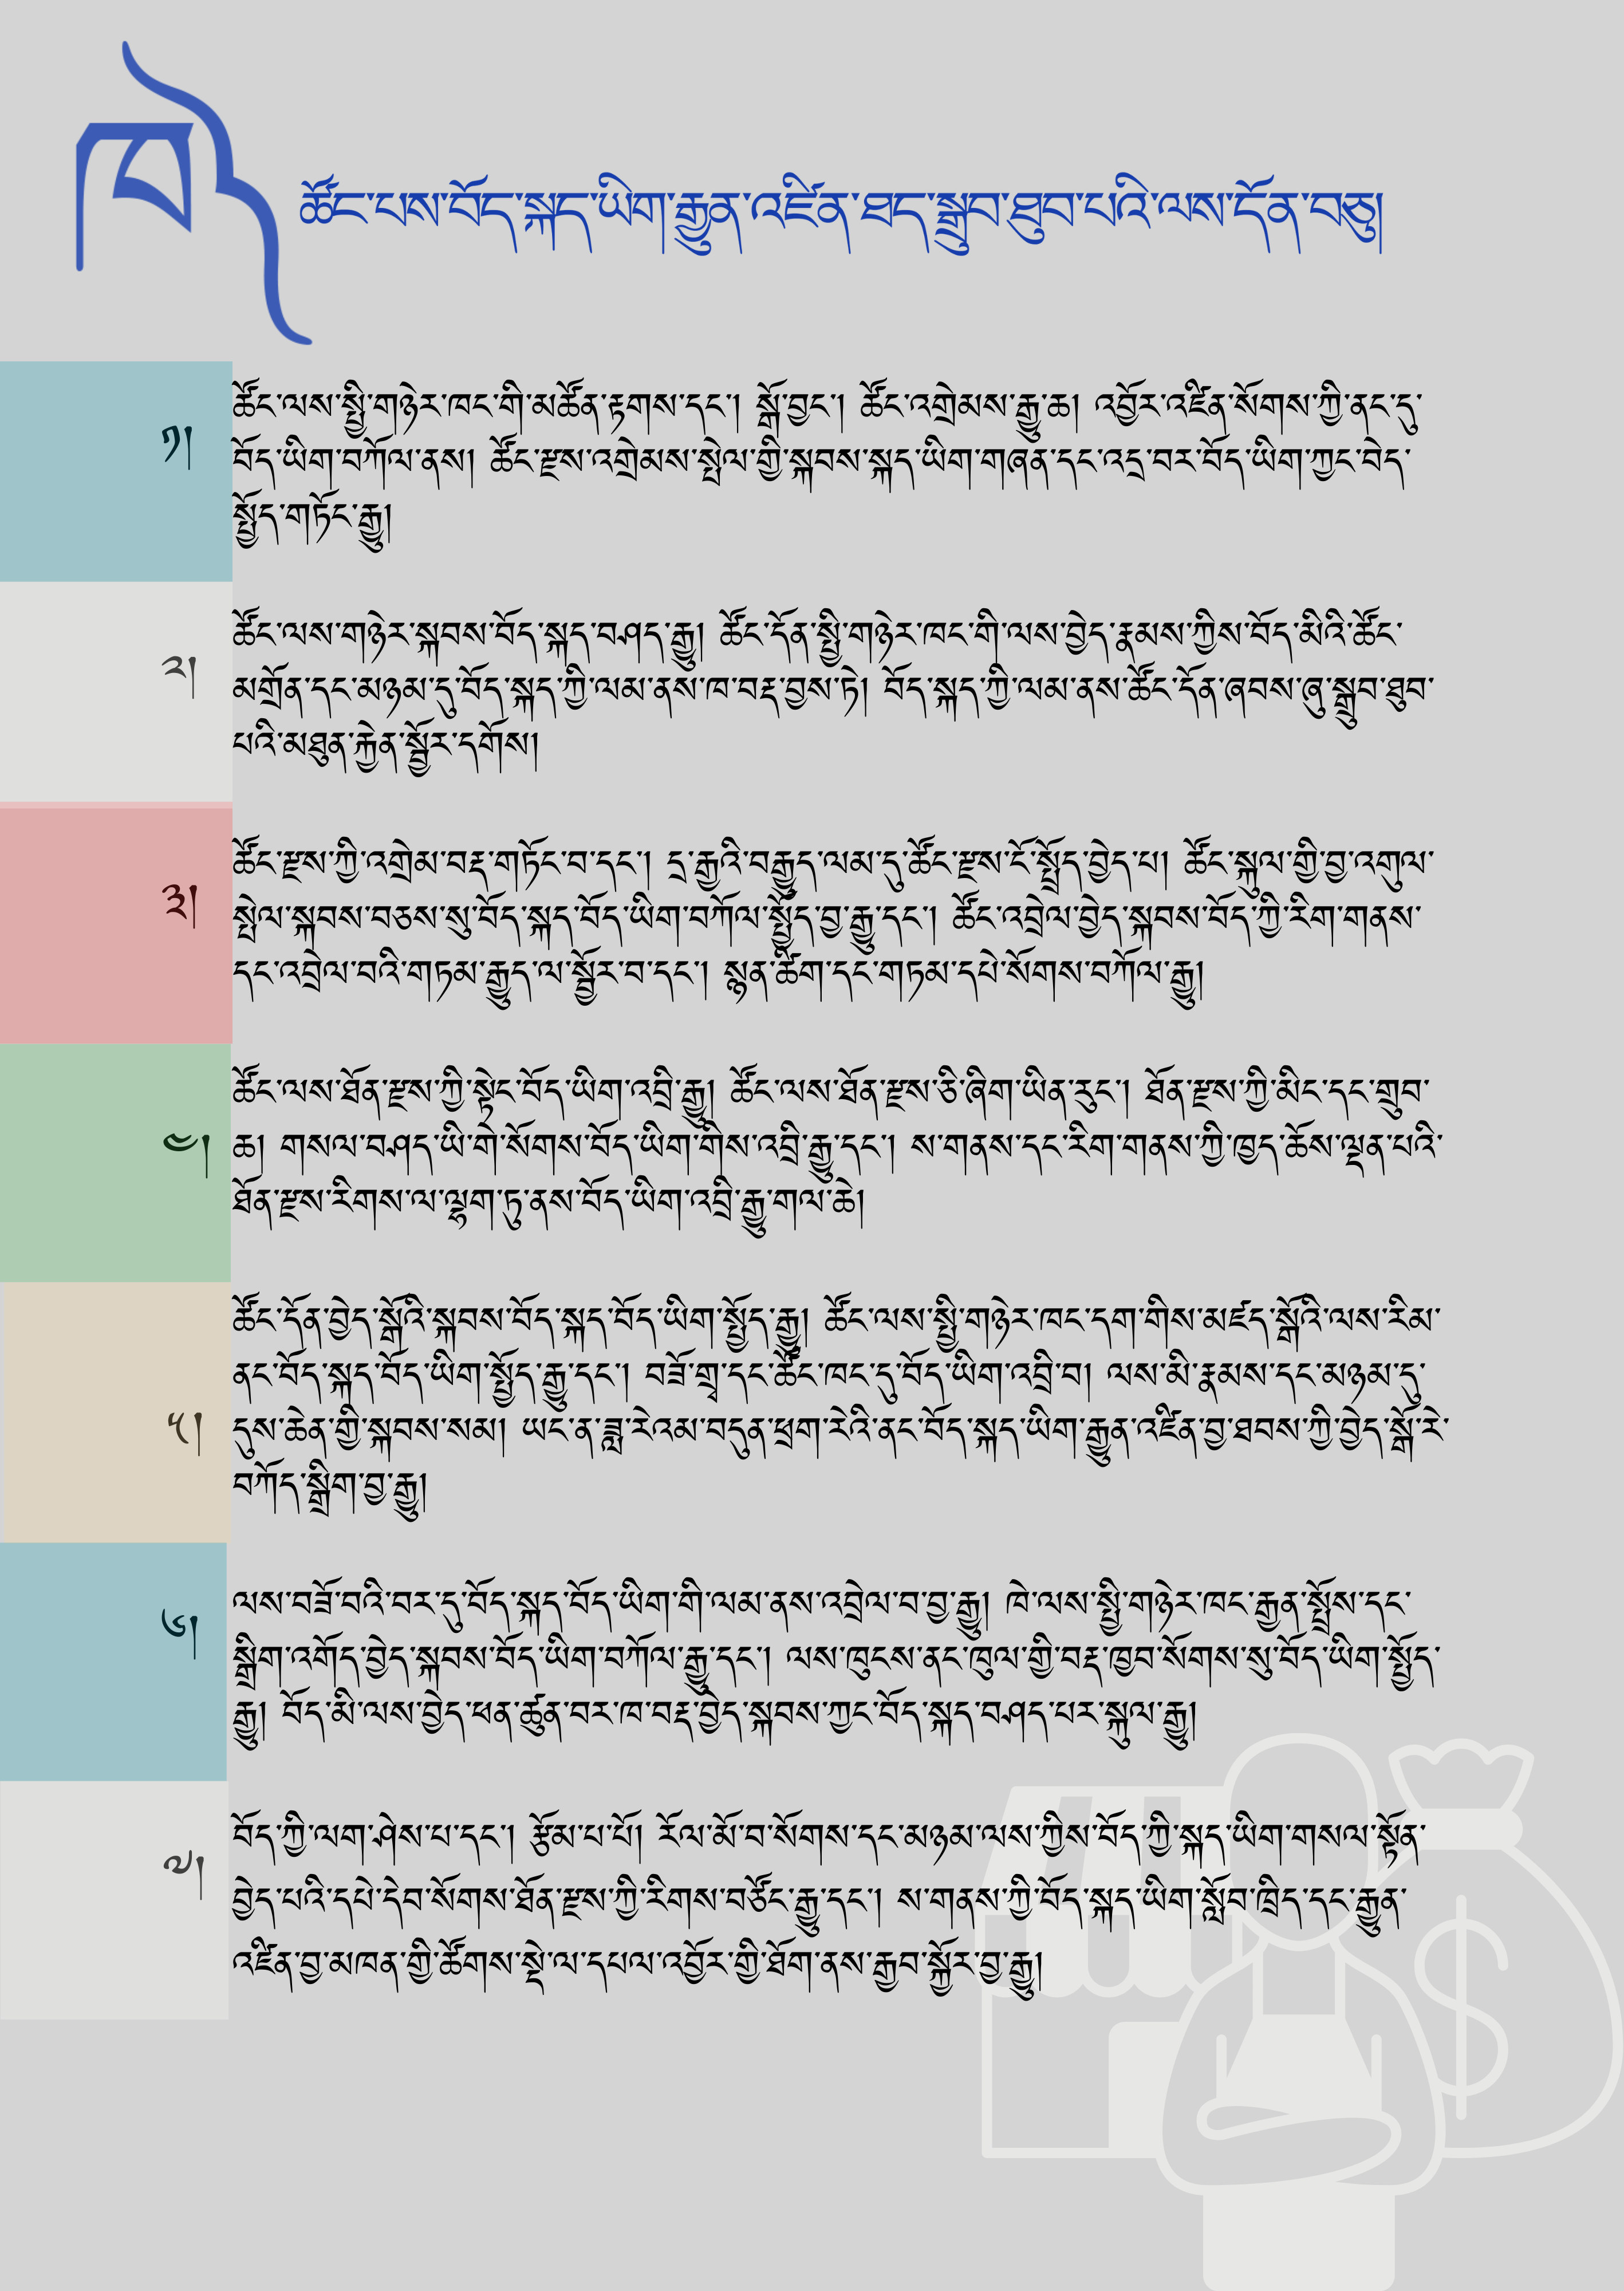 ཚོང་པས་བོད་སྐད་ཡིག་རྒྱུན་འཛིན་ཐད་སྒྲུབ་ཐུབ་པའི་ལས་དོན་བཅུ།
༡།
ཚོང་ལས་སྤྱི་གཉེར་ཁང་གི་མཚོན་རྟགས་དང་། སྒོ་བྱང་། ཚོང་འགྲེམས་རྒྱུ་ཆ། འབྱོར་འཛིན་སོགས་ཀྱི་ནང་དུ་
བོད་ཡིག་བཀོལ་ནས། ཚོང་རྫས་འགྲེམས་སྤེལ་གྱི་སྐབས་སྐད་ཡིག་གཞན་དང་འདྲ་བར་བོད་ཡིག་ཀྱང་བེད་
སྤྱོད་གཏོང་རྒྱུ།
༢།
ཚོང་ལས་གཉེར་སྐབས་བོད་སྐད་བཤད་རྒྱུ། ཚོང་དོན་སྤྱི་གཉེར་ཁང་གི་ལས་བྱེད་རྣམས་ཀྱིས་བོད་མིའི་ཚོང་
མགྲོན་དང་མཉམ་དུ་བོད་སྐད་ཀྱི་ལམ་ནས་ཁ་བརྡ་བྱས་ཏེ། བོད་སྐད་ཀྱི་ལམ་ནས་ཚོང་དོན་ཞབས་ཞུ་སྒྲུབ་ཐུབ་
པའི་མཐུན་རྐྱེན་སྦྱོར་དགོས།
༣།
ཚོང་རྫས་ཀྱི་འགྲེམ་བརྡ་གཏོང་བ་དང་། དྲ་རྒྱའི་བརྒྱུད་ལམ་དུ་ཚོང་རྫས་ངོ་སྤྲོད་བྱེད་པ། ཚོང་སྐུལ་གྱི་བྱ་འགུལ་
སྤེལ་སྐབས་བཅས་སུ་བོད་སྐད་བོད་ཡིག་བཀོལ་སྤྱོད་བྱ་རྒྱུ་དང་། ཚོང་འབྲེལ་བྱེད་སྐབས་བོད་ཀྱི་རིག་གནས་
དང་འབྲེལ་བའི་གཏམ་རྒྱུད་ལ་སྦྱོར་བ་དང་། སྙན་ཚིག་དང་གཏམ་དཔེ་སོགས་བཀོལ་རྒྱུ།
༤།
ཚོང་ལས་ཐོན་རྫས་ཀྱི་སྟེང་བོད་ཡིག་འབྲི་རྒྱུ། ཚོང་ལས་ཐོན་རྫས་ཅི་ཞིག་ཡིན་རུང་། ཐོན་རྫས་ཀྱི་མིང་དང་གྲུབ་
ཆ། གསལ་བཤད་ཡི་གེ་སོགས་བོད་ཡིག་གིས་འབྲི་རྒྱུ་དང་། ས་གནས་དང་རིག་གནས་ཀྱི་ཁྱད་ཆོས་ལྡན་པའི་
ཐོན་རྫས་རིགས་ལ་ལྷག་ཏུ་ནས་བོད་ཡིག་འབྲི་རྒྱུ་གལ་ཆེ།
༥།
ཚོང་དོན་བྱེད་སྒོའི་སྐབས་བོད་སྐད་བོད་ཡིག་སྤྱོད་རྒྱུ། ཚོང་ལས་སྤྱི་གཉེར་ཁང་དག་གིས་མཛད་སྒོའི་ལས་རིམ་
ནང་བོད་སྐད་བོད་ཡིག་སྤྱོད་རྒྱུ་དང་། བཟོ་གྲྭ་དང་ཚོང་ཁང་དུ་བོད་ཡིག་འབྲི་བ། ལས་མི་རྣམས་དང་མཉམ་དུ་
དུས་ཆེན་གྱི་སྐབས་སམ། ཡང་ན་ཟླ་རེའམ་བདུན་ཕྲག་རེའི་ནང་བོད་སྐད་ཡིག་རྒྱུན་འཛིན་བྱ་ཐབས་ཀྱི་བྱེད་སྒོ་རེ་
བཀོད་སྒྲིག་བྱ་རྒྱུ།
༦།
ལས་བཟོ་བའི་བར་དུ་བོད་སྐད་བོད་ཡིག་གི་ལམ་ནས་འབྲེལ་བ་བྱ་རྒྱུ། ཁེ་ལས་སྤྱི་གཉེར་ཁང་རྒྱན་སྤྲོས་དང་
སྒྲིག་འགོད་བྱེད་སྐབས་བོད་ཡིག་བཀོལ་རྒྱུ་དང་། ལས་ཁུངས་ནང་ཁུལ་གྱི་བརྡ་ཁྱབ་སོགས་སུ་བོད་ཡིག་སྤྱོད་
རྒྱུ། བོད་མི་ལས་བྱེད་ཕན་ཚུན་བར་ཁ་བརྡ་བྱེད་སྐབས་ཀྱང་བོད་སྐད་བཤད་པར་སྐུལ་རྒྱུ།
༧།
བོད་ཀྱི་ལག་ཤེས་པ་དང་། རྩོམ་པ་པོ། རོལ་མོ་བ་སོགས་དང་མཉམ་ལས་ཀྱིས་བོད་ཀྱི་སྐད་ཡིག་གསལ་སྟོན་
བྱེད་པའི་དཔེ་དེབ་སོགས་ཐོན་རྫས་ཀྱི་རིགས་བཙོང་རྒྱུ་དང་། ས་གནས་ཀྱི་བོད་སྐད་ཡིག་སློབ་ཁྲིད་དང་རྒྱུན་
འཛིན་བྱ་མཁན་གྱི་ཚོགས་སྡེ་ལ་དཔལ་འབྱོར་གྱི་ཐོག་ནས་རྒྱབ་སྐྱོར་བྱ་རྒྱུ།